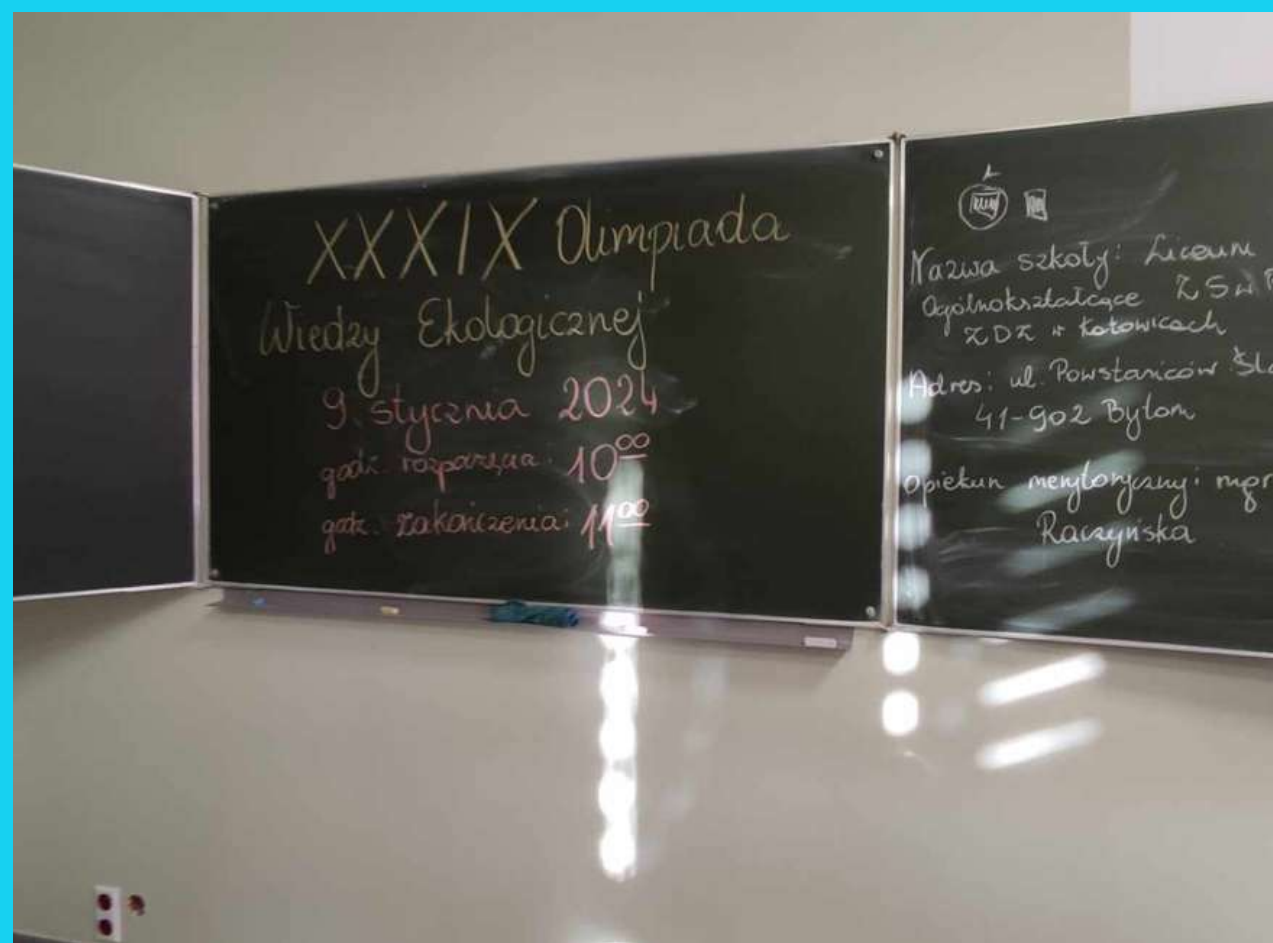 XXXIX Olimpiada
Wiedzy Ekologicznej
9. stycznia 2024
godz. rozpoczęcia: 10⁰⁰
godz. zakończenia: 11⁰⁰
Nazwa szkoły: Liceum
Ogólnokształcące ZSwB
ZDZ w Katowicach
Adres: ul. Powstańców Ślą
41-902 Bytom
Opiekun merytoryczny: mgr
Raczyńska